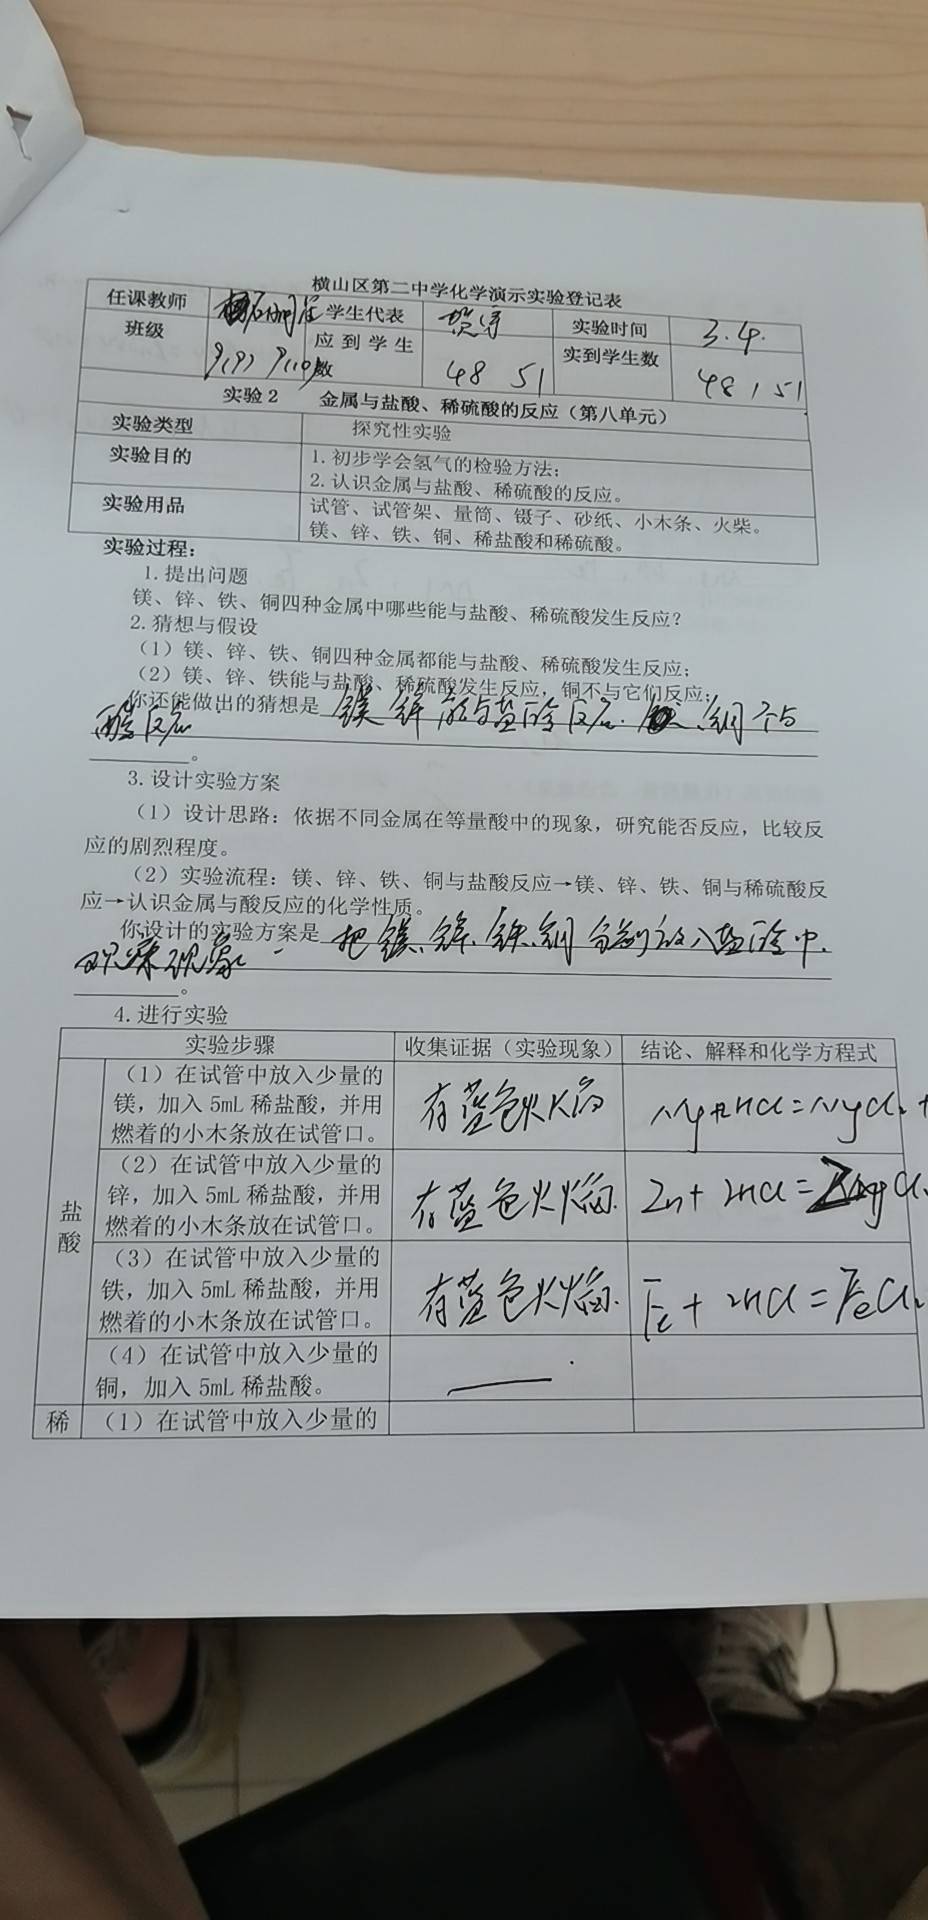 横山区第二中学化学演示实验登记表
任课教师 学生代表 实验时间 3.4.
班级 9(9) 9(10) 应到学生数 48 51 实到学生数 48 51
实验2 金属与盐酸、稀硫酸的反应（第八单元）
实验类型 探究性实验
实验目的 1.初步学会氢气的检验方法；
2.认识金属与盐酸、稀硫酸的反应。
实验用品 试管、试管架、量筒、镊子、砂纸、小木条、火柴。
镁、锌、铁、铜、稀盐酸和稀硫酸。
实验过程：
1.提出问题
镁、锌、铁、铜四种金属中哪些能与盐酸、稀硫酸发生反应？
2.猜想与假设
（1）镁、锌、铁、铜四种金属都能与盐酸、稀硫酸发生反应；
（2）镁、锌、铁能与盐酸、稀硫酸发生反应，铜不与它们反应；
你还能做出的猜想是 镁 锌 能与盐酸反应. 、铜不与
酸反应
。
3.设计实验方案
（1）设计思路：依据不同金属在等量酸中的现象，研究能否反应，比较反
应的剧烈程度。
（2）实验流程：镁、锌、铁、铜与盐酸反应→镁、锌、铁、铜与稀硫酸反
应→认识金属与酸反应的化学性质。
你设计的实验方案是 把镁、锌、铁、铜 分别放入盐酸中.
观察现象
。
4.进行实验
实验步骤 收集证据（实验现象） 结论、解释和化学方程式
盐酸
（1）在试管中放入少量的
镁，加入 5mL 稀盐酸，并用
燃着的小木条放在试管口。
有蓝色火焰
Mg+2HCl=MgCl₂+
（2）在试管中放入少量的
锌，加入 5mL 稀盐酸，并用
燃着的小木条放在试管口。
有蓝色火焰.
Zn+2HCl=
（3）在试管中放入少量的
铁，加入 5mL 稀盐酸，并用
燃着的小木条放在试管口。
有蓝色火焰.
Fe+2HCl=FeCl₂
（4）在试管中放入少量的
铜，加入 5mL 稀盐酸。
稀 （1）在试管中放入少量的